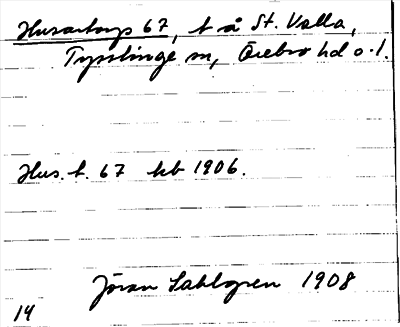 Husartorp 67, t å St. Valla,
Tysslinge sn, Örebro hd o. l.
Hus. t. 67 kb 1906.
Jöran Sahlgren 1908
14